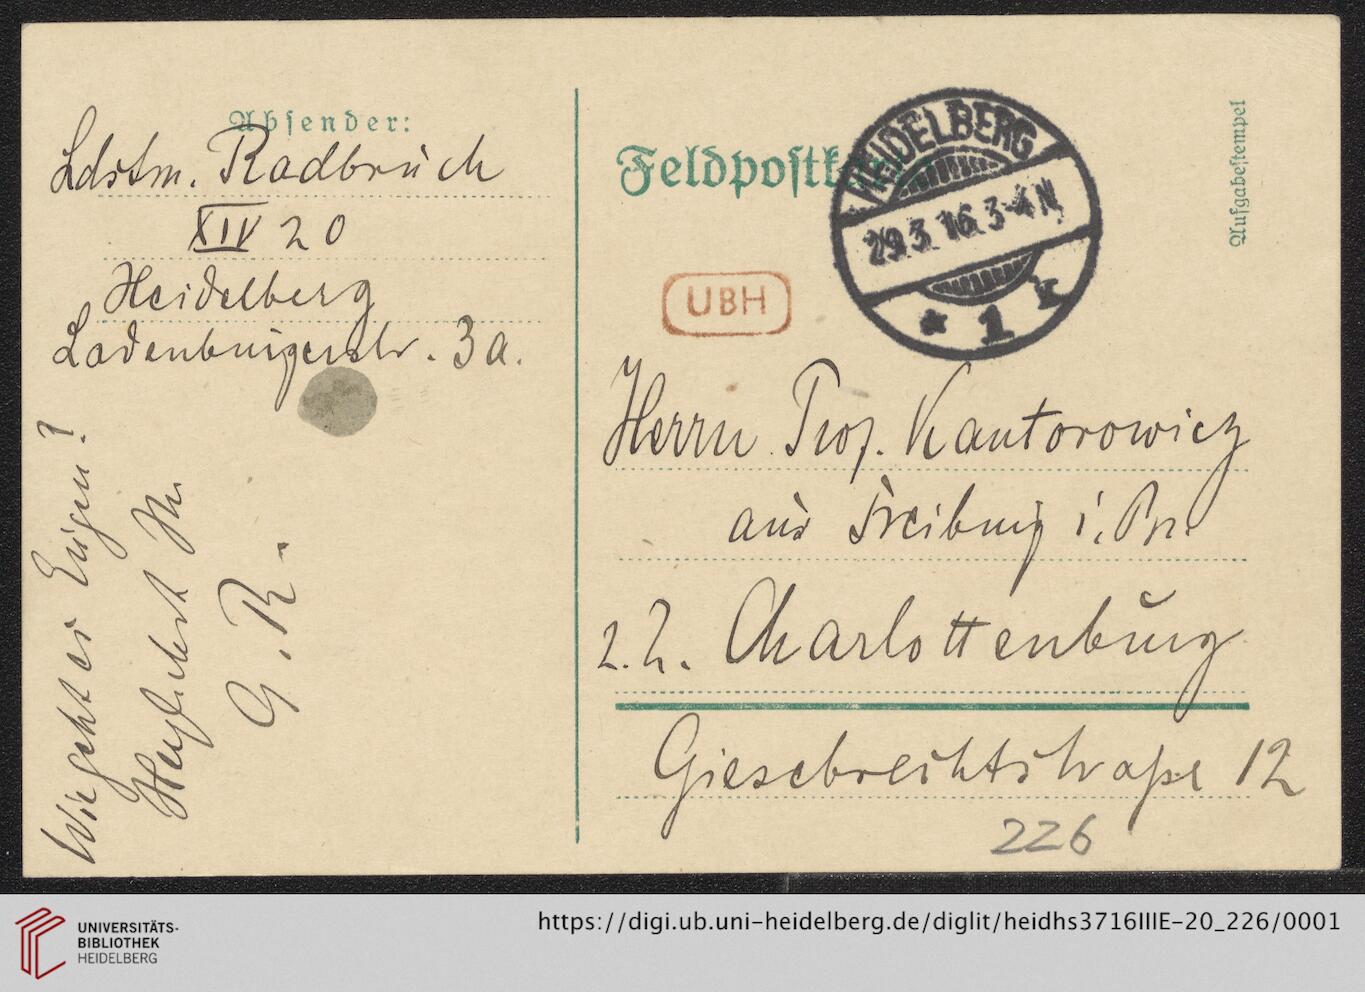 Absender:
Ldstm. Radbruch
XIV 20
Heidelberg
Ladenburgerstr. 3a.
Wie geht es Eugen?
Herzlichst Ihr
G. R.
Feldpostkarte
Aufgabestempel
HEIDELBERG
29.3.16.3-4N
* 1 k
UBH
Herrn Prof. Kantorowicz
aus Freiburg i. Br.
z. Z. Charlottenburg
Giesebrechtstraße 12
226
UNIVERSITÄTS-
BIBLIOTHEK
HEIDELBERG
https://digi.ub.uni-heidelberg.de/diglit/heidhs3716IIIE-20_226/0001